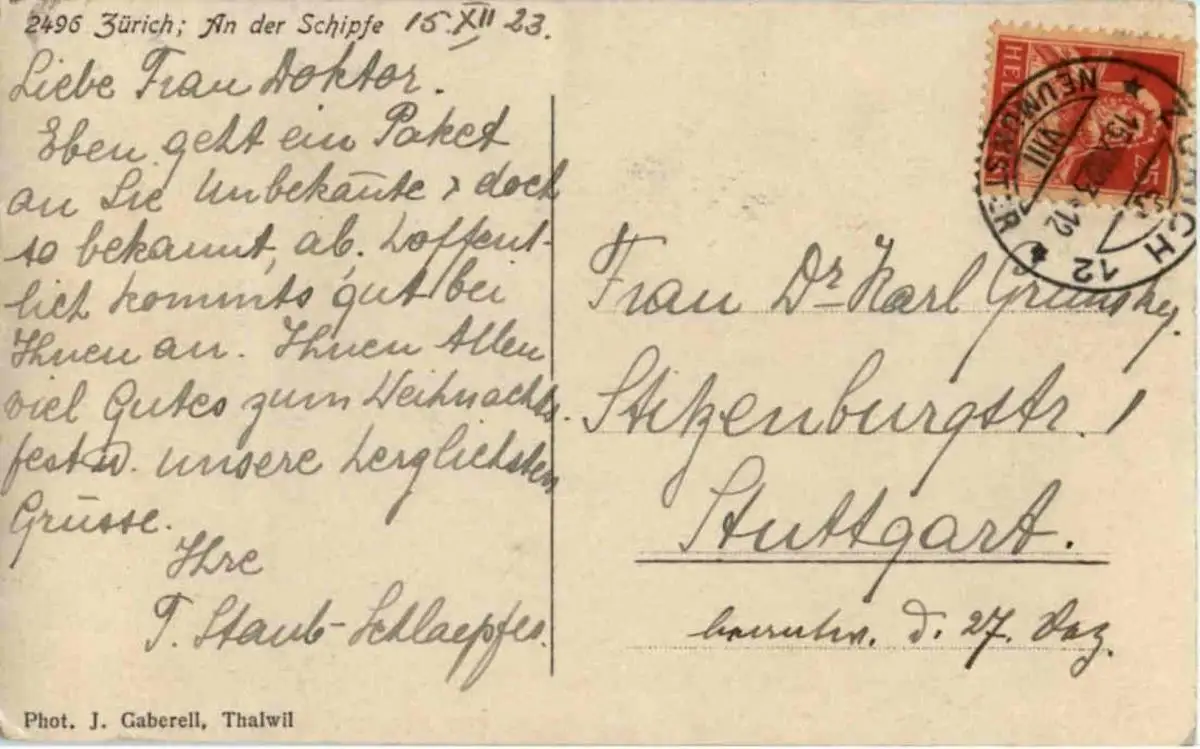 2496 Zürich; An der Schipfe 15. XII 23.
Liebe Frau Doktor.
Eben geht ein Paket
an Sie Unbekan̄te & doch
so bekannt, ab. Hoffent-
lich kommts gut bei
Ihnen an. Ihnen Allen
viel Gutes zum Weihnachts-
fest u. unsere herzlichsten
Grüsse.
Ihre
T. Staub-Schlaepfer.
Phot. J. Gaberell, Thalwil
HEL
25
ZÜRICH 12
NEUMÜNSTER
VIII
Frau Dr Karl Grunsky.
Stitzenburgstr. 1
Stuttgart.
d. 27. Dez.